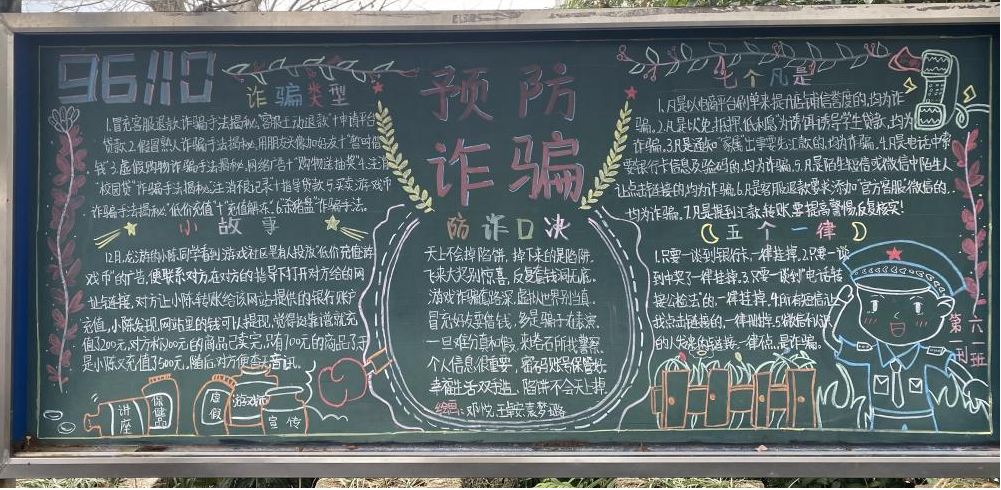 96110
预防
诈骗
诈骗类型
1.冒充客服退款诈骗手法揭秘"客服主动退款"+申请平台
贷款2.假冒熟人诈骗手法揭秘,用朋友头像加好友+"暂时借
钱"3.虚假购物诈骗手法揭秘,网络广告+"购物送抽奖"4.注消
"校园贷"诈骗手法揭秘"注消很记录"+指导贷款5.买卖游戏币
诈骗手法揭秘"低价充值"+"充值解冻"6."杀猪盘"诈骗手法。
小故事
12月,龙游的小陈同学看到游戏社区里有人投放"低价充值游
戏币"的广告,便联系对方在对方的指导下打开对方给的网
址链接,对方让小陈转账给该网站提供的银行账户
充值,小陈发现网站里的钱可以提现,觉得挺靠谱就充
值3200元,对方称100元的商品已卖完,只有100元的商品了于
是小陈又充值3500元,随后对方便杳无音讯。
讲座
保健品
虚假
游戏币
宣传
防诈口决
天上不会掉陷饼,掉下来的是陷阱。
飞来大奖别惊喜,反复套钱洞无底。
游戏诈骗套路深,虚拟世界别当真。
冒充好友要借钱,多是骗子在表演。
一旦难分真和假,来卷石所找警察。
个人信息很重要,密码账号保管好。
幸福生活双手造,陷饼不会天上掉。
绘画:邓悦,王
七个凡是
1.凡是以电商平台刷单来提高店铺信誉度的,均为诈
骗。2.凡是以免抵押"低利息"为诱饵诱导学生贷款,均为
诈骗。3.凡是通知"家属"出事要先汇款的,均为诈骗。4.凡是电话中索
要银行卡信息及验码的,均为诈骗。5.凡是陌生短信或微信中陌生人
让点击链接的,均为诈骗。6.凡是客服退款要求添加"官方客服"微信的,
均为诈骗。7.凡是提到汇款,转账,要提高警惕,反复核实!
五个一律
1.只要一谈到银行卡,一律挂掉。2.只要一谈
到中奖了一律挂掉。3.只要一谈到"电话转
接公检法"的,一律挂掉。4.所有短信让
我点击链接的,一律删掉。5.微信不认识
的人发来的链接一律不点,是诈骗。
第一刊
六二班